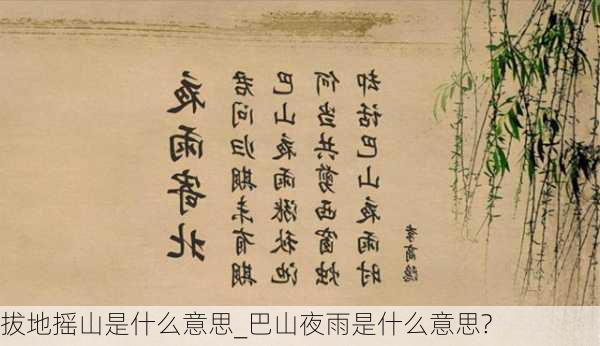 夜雨寄北
君问归期未有期
巴山夜雨涨秋池
何当共剪西窗烛
却话巴山夜雨时
李商隐
拔地摇山是什么意思_巴山夜雨是什么意思?